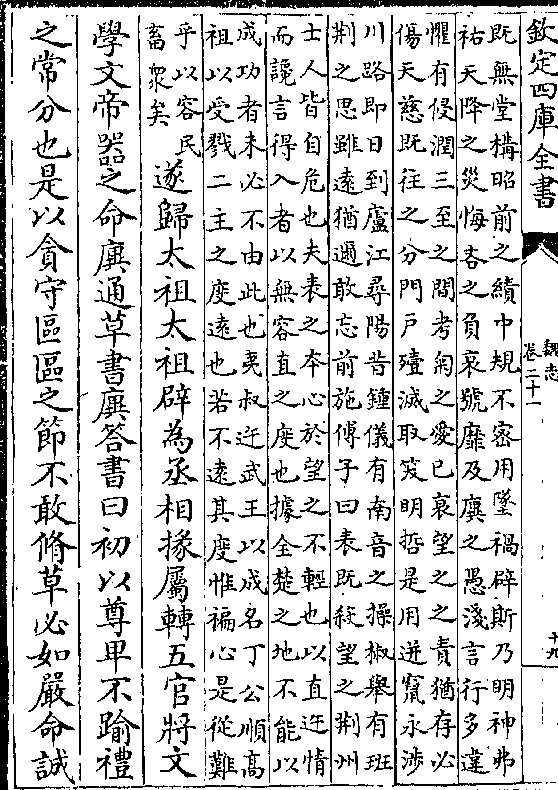 欽定四庫全書
魏志
卷二十一
十九
既無堂構昭前之績中規不密用墜禍辟斯乃明神弗
祐天降之災悔吝之負哀號靡及廙之愚淺言行多違
懼有侵潤三至之間考之愛已衰望之之責猶存必
傷天慈既往之分門戶殪滅取笑明哲是用迸竄永涉
川路即日到廬江尋陽昔鍾儀有南音之操椒舉有班
荆之思雖遠猶邇敢忘前施傅子曰表既殺望之荆州
士人皆自危也夫表之本心於望之不輕也以直迕情
而讒言得入者以無容直之度也據全楚之地不能以
成功者未必不由此也夷叔迕武王以成名丁公順高
祖以受戮二主之度遠也若不遠其度惟褊心是從難
乎以容民
畜衆矣
遂歸太祖太祖辟為丞相掾屬轉五官將文
學文帝器之命廙通草書廙答書曰初以尊卑不踰禮
之常分也是以貪守區區之節不敢脩草必如嚴命誠